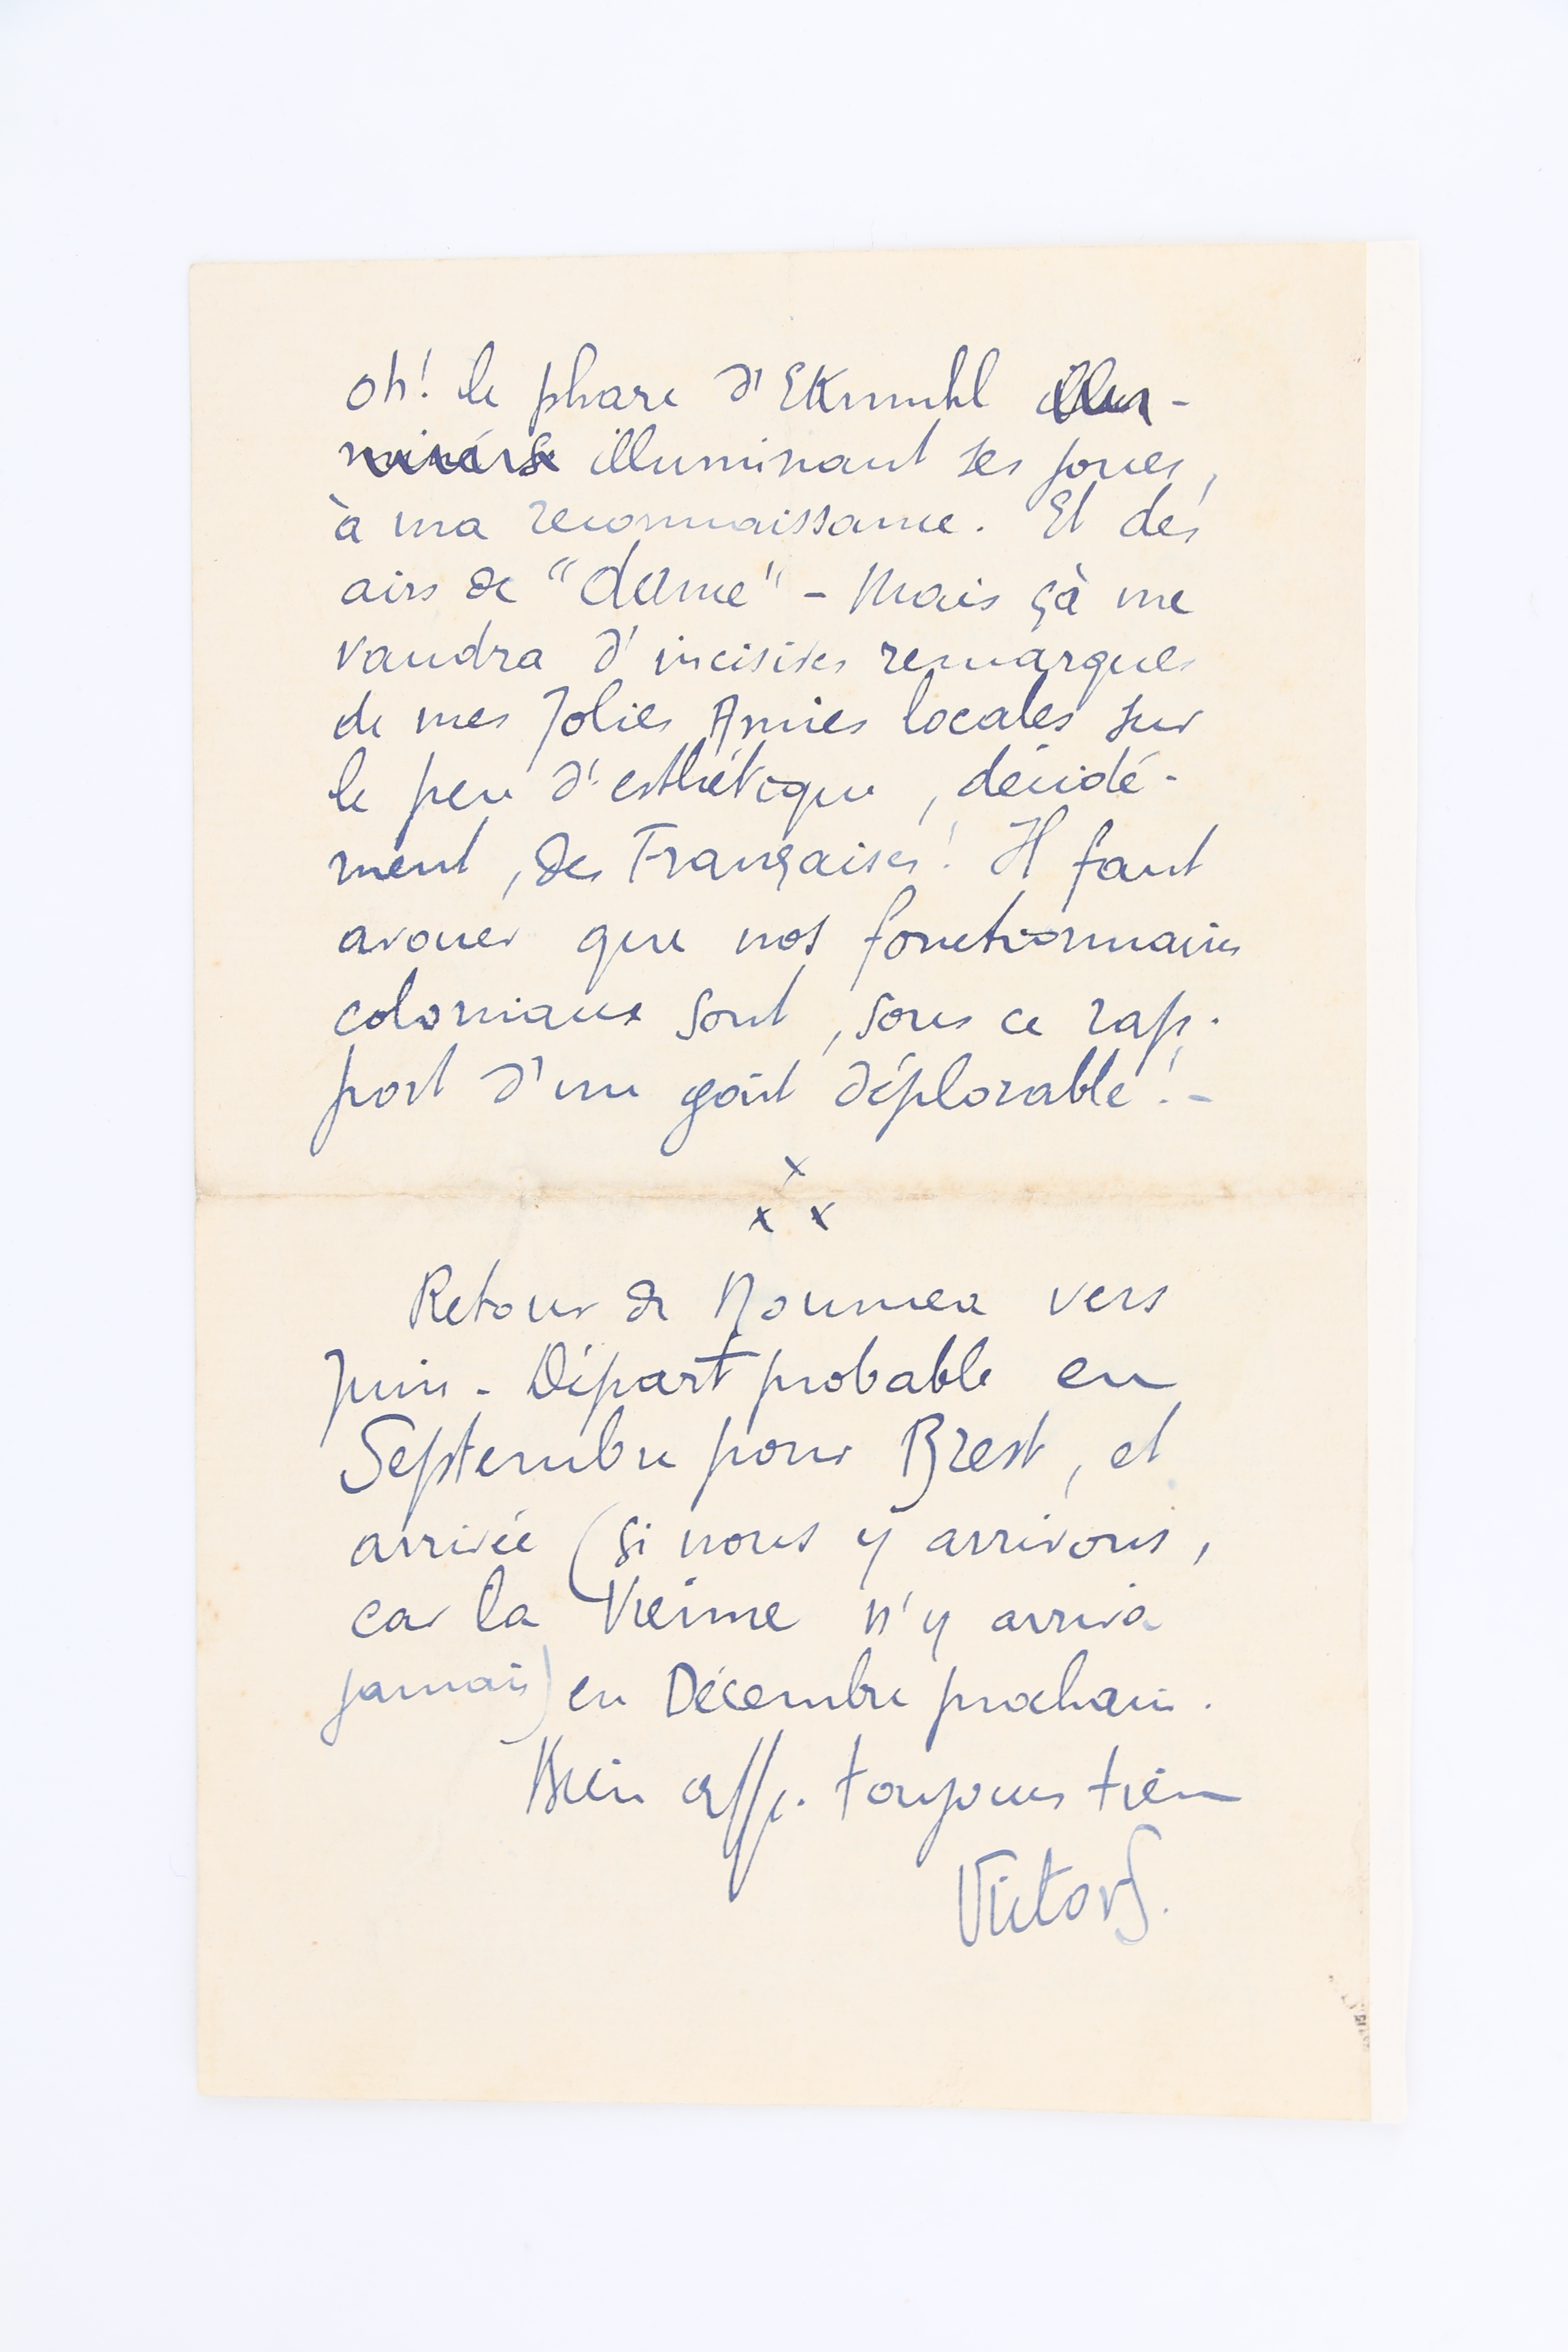 oh! le phare d'Ekmuhl illu-
minés illuminant ses joues,
à ma reconnaissance. Et des
airs de "dame" - Mais çà me
vaudra d'incisives remarques
de mes Jolies Amies locales sur
le peu d'esthétique, décidé-
ment, des Françaises! Il faut
avouer que nos fonctionnaires
coloniaux sont, sous ce rap-
port d'un goût déplorable! -
x
x x
Retour de Noumea vers
Juin - Départ probable en
Septembre pour Brest, et
arrivée (si nous y arrivons,
car la Vienne n'y arriva
jamais) en Décembre prochain.
Bien aff. toujours tien
Victor S.